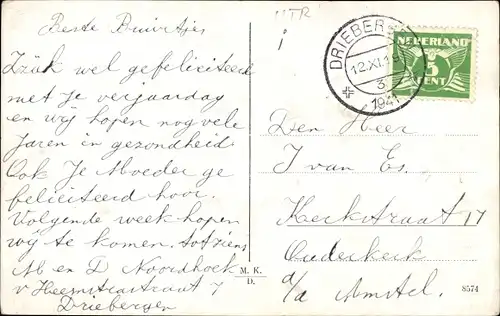 UTR
Beste Buurtjes
Izäk wel gefeliciteerd
met Je verjaardag
en wÿ hopen nog vele
Jaren in gezondheid
Ook Je Moeder ge
feliciteerd hoor.
Volgende week hopen
wÿ te komen. tot ziens
M en D Noordhoek
v Heemstrastraat 7
Driebergen
M. K.
D.
DRIEBER
12.XI.19
3
1941
NEDERLAND
5
CENT
Den Heer
J van Es.
Kerkstraat 17
Ouderkerk
a/d Amstel.
8574